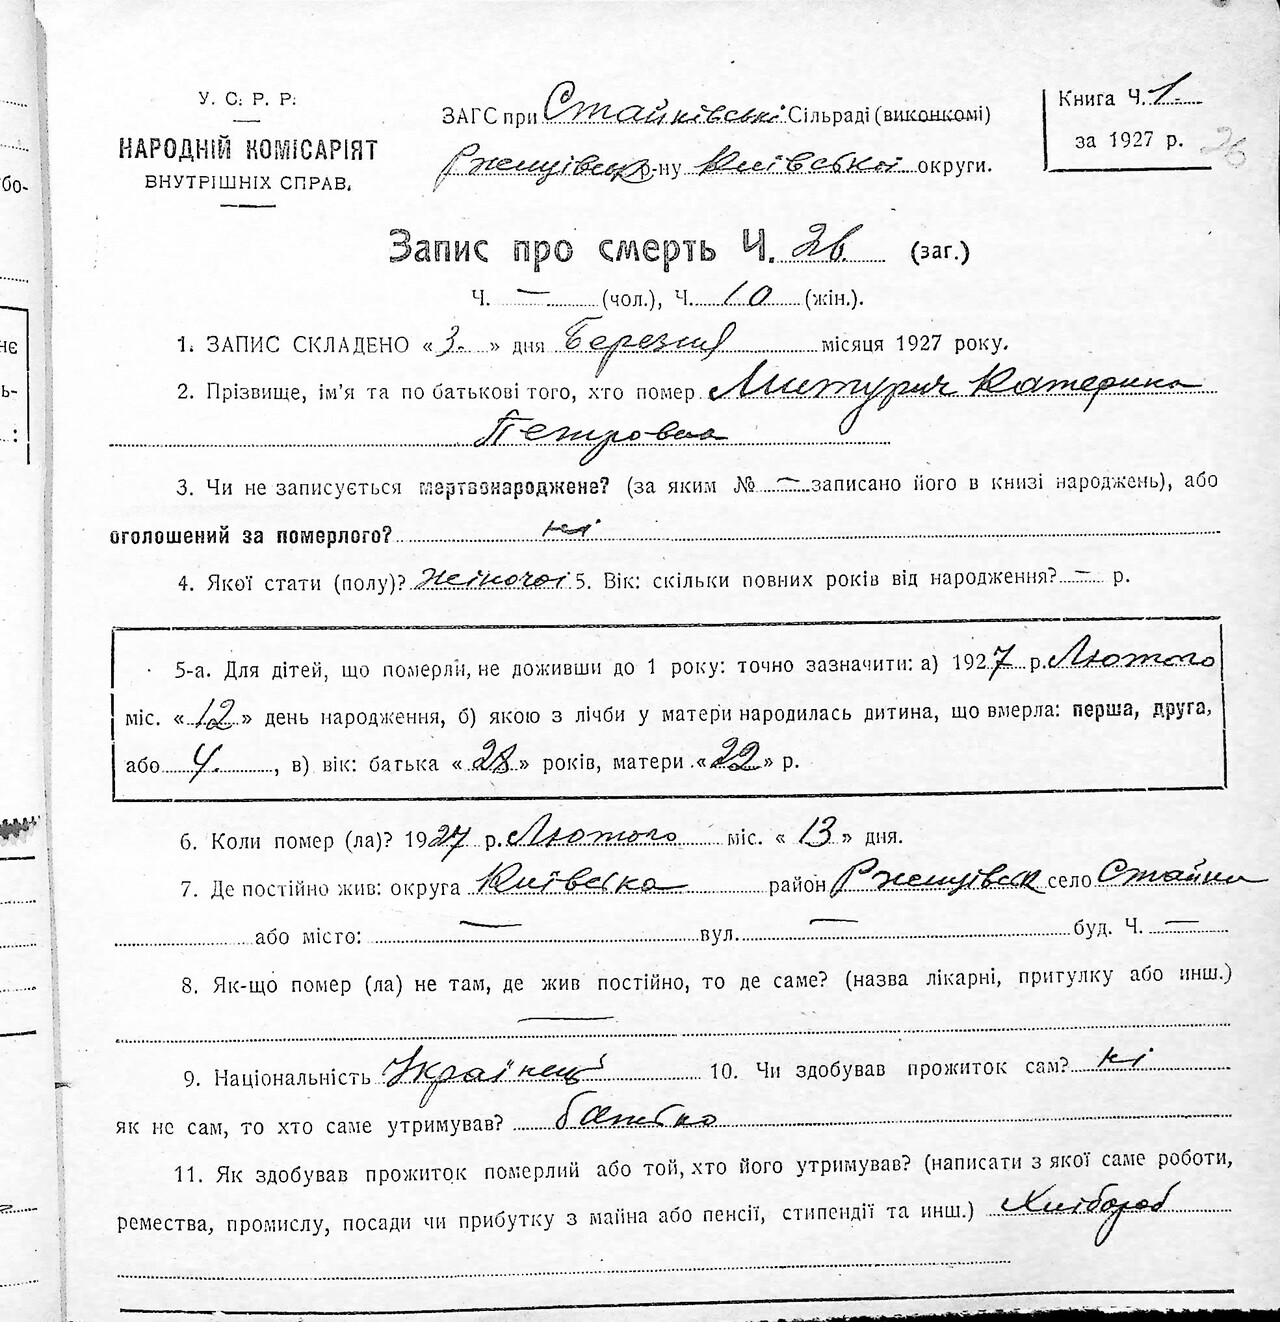 У. С. Р. Р.
НАРОДНІЙ КОМІСАРІЯТ
ВНУТРІШНІХ СПРАВ.
ЗАГС при Стайківські Сільраді (виконкомі)
Ржищівськ р-ну Київської округи.
Книга Ч. 1
за 1927 р.
26
Запис про смерть Ч. 26. (заг.)
Ч. — (чол.), Ч. 10 (жін.).
1. ЗАПИС СКЛАДЕНО « 3. » дня Березня місяця 1927 року.
2. Прізвище, ім'я та по батькові того, хто помер Митурич Катерина
Петровна
3. Чи не записується мертвонароджене? (за яким № — записано його в книзі народжень), або
оголошений за померлого? ні
4. Якої стати (полу)? жіночоі 5. Вік: скільки повних років від народження? — р.
5-а. Для дітей, що померли, не доживши до 1 року: точно зазначити: а) 1927 р. Лютого
міс. « 12 » день народження, б) якою з лічби у матери народилась дитина, що вмерла: перша, друга,
або 4. , в) вік: батька « 28 » років, матери « 22 » р.
6. Коли помер (ла)? 1927 р. Лютого міс. « 13 » дня.
7. Де постійно жив: округа Київська район Ржищівськ село Стайки
або місто: — вул. — буд. Ч. —
8. Як-що помер (ла) не там, де жив постійно, то де саме? (назва лікарні, притулку або инш.)
—
9. Національність Українец 10. Чи здобував прожиток сам? ні
як не сам, то хто саме утримував? батько
11. Як здобував прожиток померлий або той, хто його утримував? (написати з якої саме роботи,
ремества, промислу, посади чи прибутку з майна або пенсії, стипендії та инш.) Хлібороб
бо-
нє
ь-
: